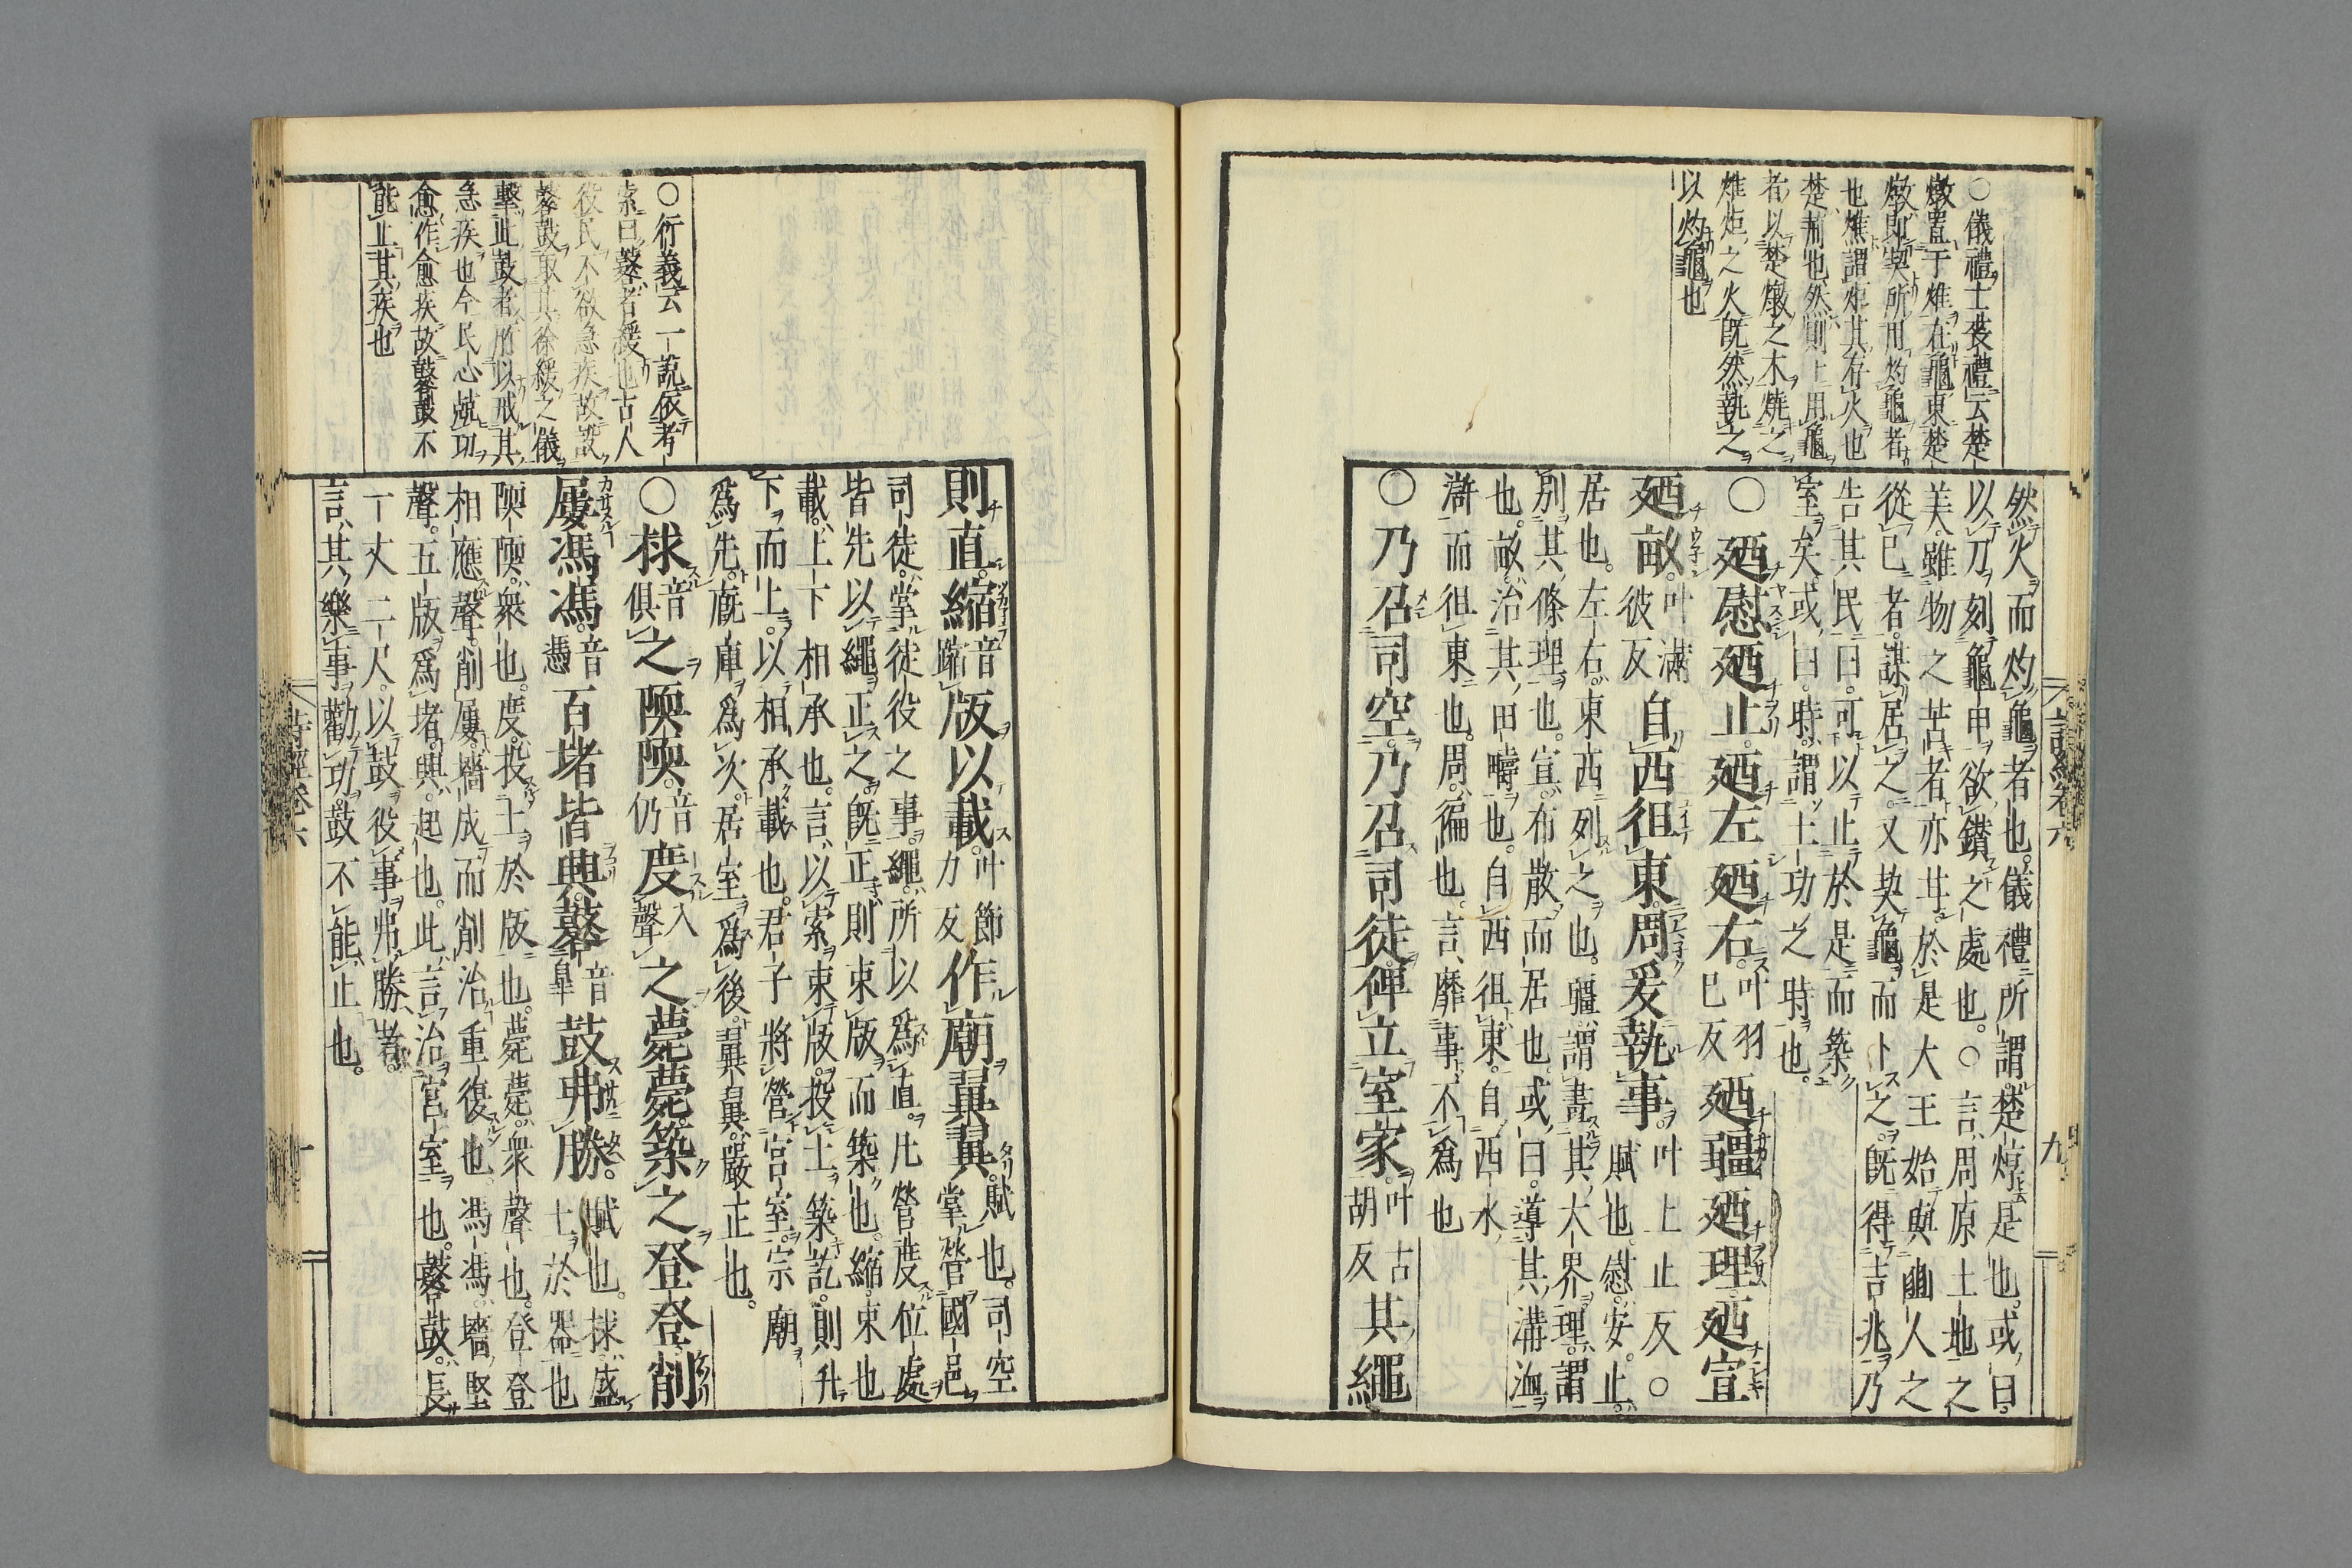 ○儀禮士䘮禮云楚
燉置于燋在龜東楚
燉即契所用灼龜者
也燋謂炬其存火也
楚荊也然則卜用龜
者以楚燉之木燒之
燋炬之火既然執之
以灼龜也
然火而灼龜者也。儀禮所謂楚焞是也。或曰。
以刀刻龜甲欲鑚之處也。○言周原土地之
美。雖物之苦者亦甘。於是大王始與豳人之
從己者。謀居之。又契龜而卜之。既得吉兆乃
告其民曰。可以止於是而築
室矣。或曰。時謂土功之時也。
○廼慰廼止。廼左廼右。叶羽己反廼疆廼理。廼宣
廼畝。叶滿彼反自西徂東。周爰執事。叶上止反○賦也。慰安。止
居也。左右東西列之也。疆謂畫其大界。理謂
別其條理也。宣布散而居也。或曰。導其溝洫
也。畝治其田疇也。自西徂東。自西水
滸而徂東也。周徧也。言靡事不爲也
○乃召司空。乃召司徒。俾立室家。叶古胡反其繩
詩經卷六 九
○衍義云一說依考
索曰鼛者緩也古人
役民不欲急疾故設
鼛鼓取其徐緩之儀
擊此鼓者所以戒其
急疾也今民心競功
愈作愈疾故鼛鼓不
能止其疾也
則直。縮音蹜版以載。叶節力反作廟翼翼。賦也。司空掌營國邑
司徒掌徒役之事。繩所以爲直。凡營度位處
皆先以繩正之。既正則束版而築也。縮束也
載上下相承也。言以索束版。投土築訖。則升
下而上。以相承載也。君子將營宮室。宗廟
爲先。廐庫爲次。居室爲後。翼翼嚴正也。
○捄音俱之陾陾。音仍度入聲之薨薨。築之登登。削
屢馮馮。音憑百堵皆興。鼛音皐鼓弗勝。賦也。捄盛土於器也
陾陾衆也。度投土於版也。薨薨衆聲也。登登
相應聲。削屢墻成而削治重復也。馮馮墻堅
聲。五版爲堵。興起也。此言治宮室也。鼛鼓長
一丈二尺。以鼓役事。弗勝者。
言其樂事勸功。鼓不能止也。
詩經卷六